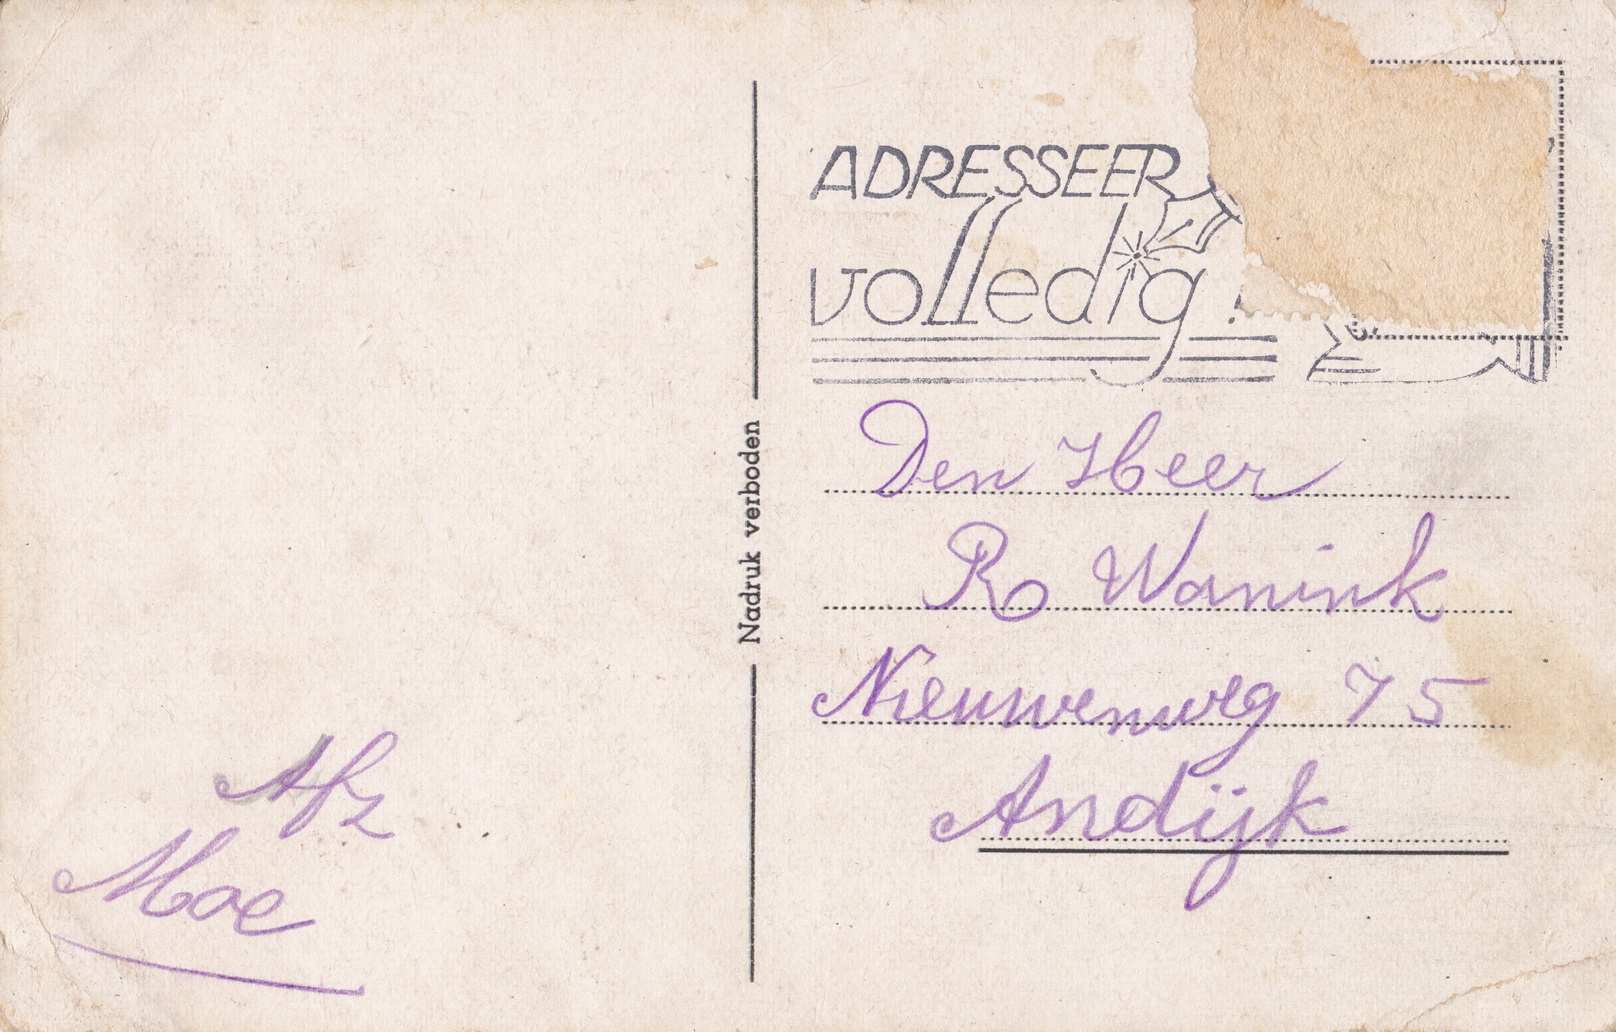 ADRESSEER
volledig!
Nadruk verboden
Den Heer
R Wanink
Nieuwenweg 75
Andijk
Afz
Moe